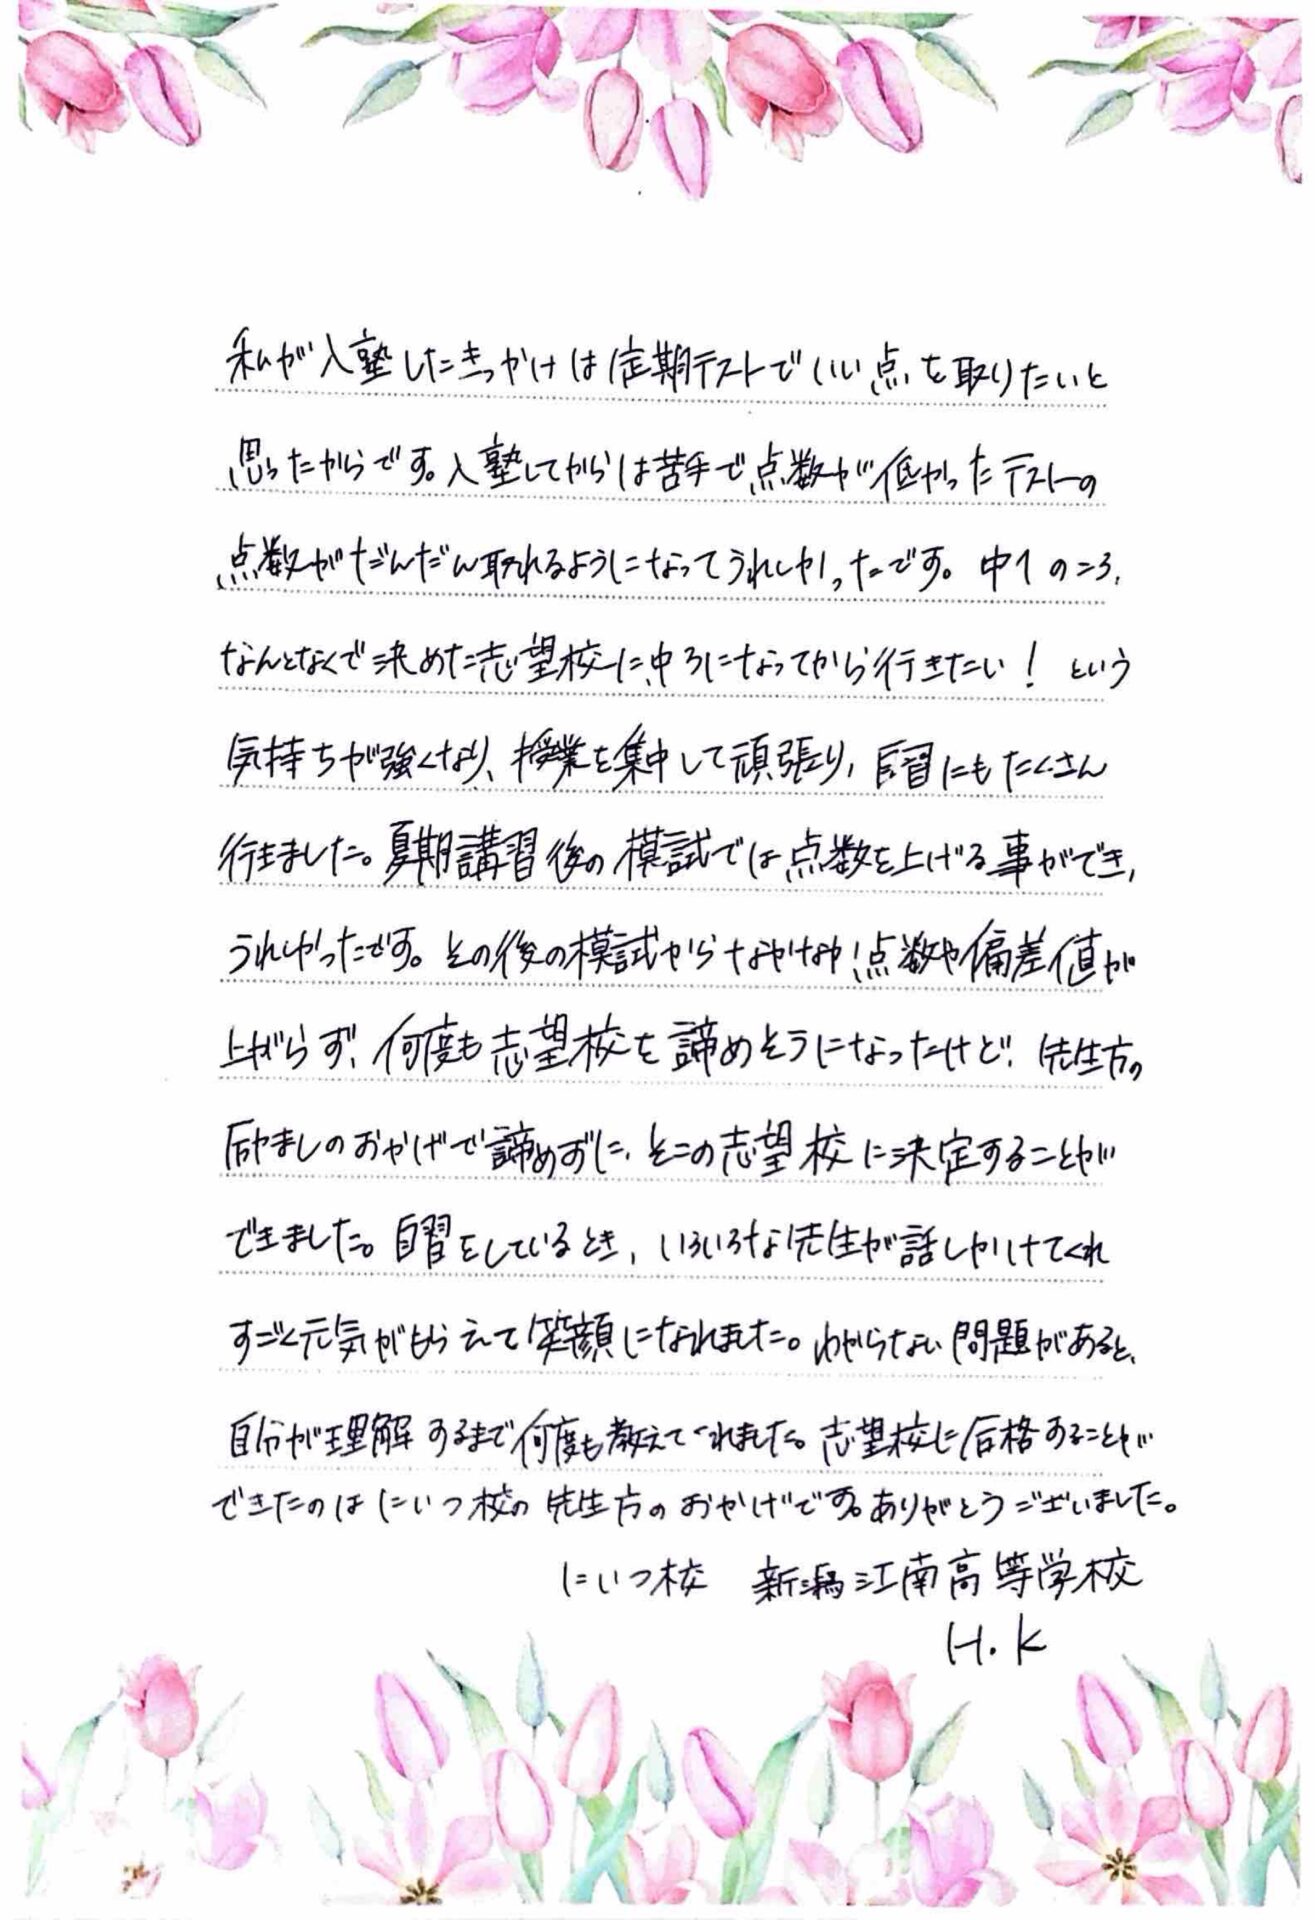 私が入塾したきっかけは定期テストでいい点を取りたいと
思ったからです。入塾してからは苦手で点数が低かったテストの
点数がだんだん取れるようになってうれしかったです。中1のころ、
なんとなくで決めた志望校に、中3になってから行きたい！という
気持ちが強くなり、授業を集中して頑張り、自習にもたくさん
行きました。夏期講習後の模試では点数を上げる事ができ、
うれしかったです。その後の模試からなかなか点数や偏差値が
上がらず、何度も志望校を諦めそうになったけど、先生方の
励ましのおかげで諦めずに、そこの志望校に決定することが
できました。自習をしているとき、いろいろな先生が話しかけてくれ
すごく元気がもらえて笑顔になれました。わからない問題があると、
自分が理解するまで何度も教えてくれました。志望校に合格することが
できたのはにいつ校の先生方のおかげです。ありがとうございました。
にいつ校 新潟江南高等学校
H.K